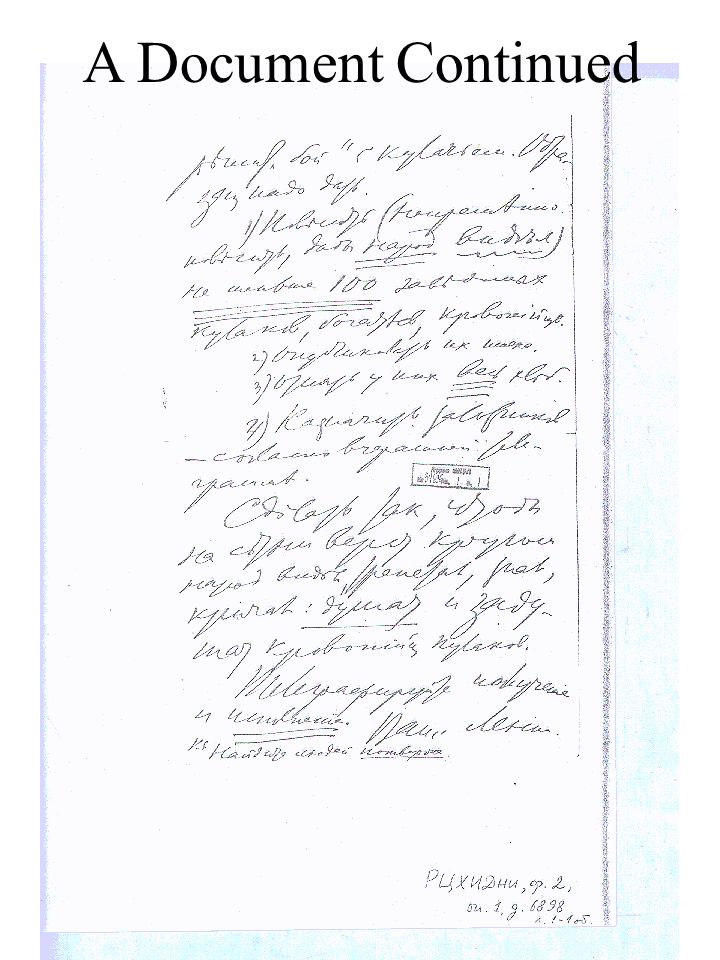 A Document Continued
решит. бой" с кулачьем. Обра-
зец надо дать.
1) Повесить (непременно
повесить, дабы народ видел)
не меньше 100 заведомых
кулаков, богатеев, кровопийц.
2) Опубликовать их имена.
3) Отнять у них весь хлеб.
4) Назначить заложников
— согласно вчерашней теле-
грамме.
Сделать так, чтобы
на сотни верст кругом
народ видел, трепетал, знал,
кричал: душат и заду-
шат кровопийц кулаков.
Телеграфируйте получение
и исполнение. Ваш Ленин.
P.S. Найдите людей потверже.
РЦХИДНИ, ф. 2,
оп. 1, д. 6898
л. 1-1об.